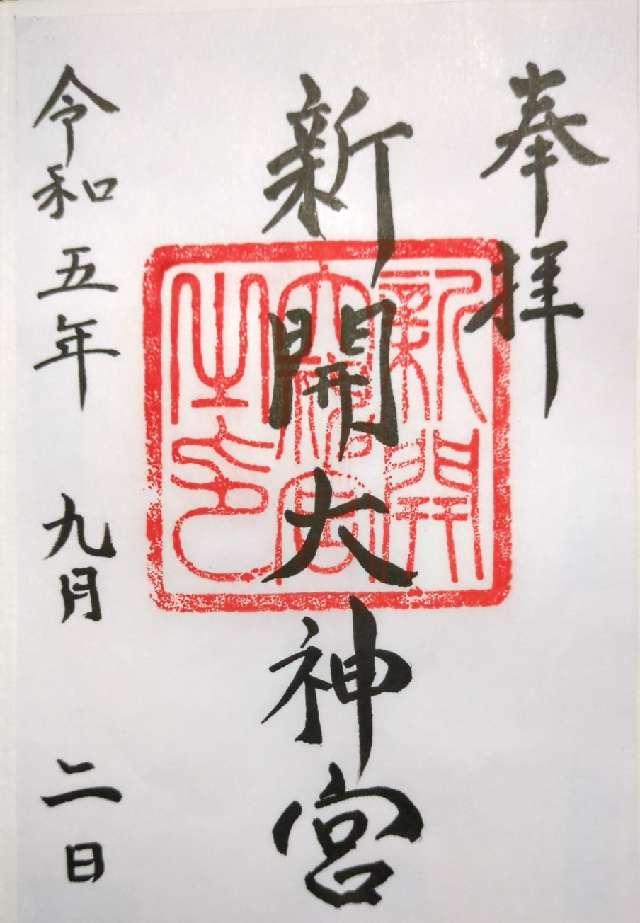 奉拝
新開大神宮
新開大神宮之印
令和五年 九月 二日